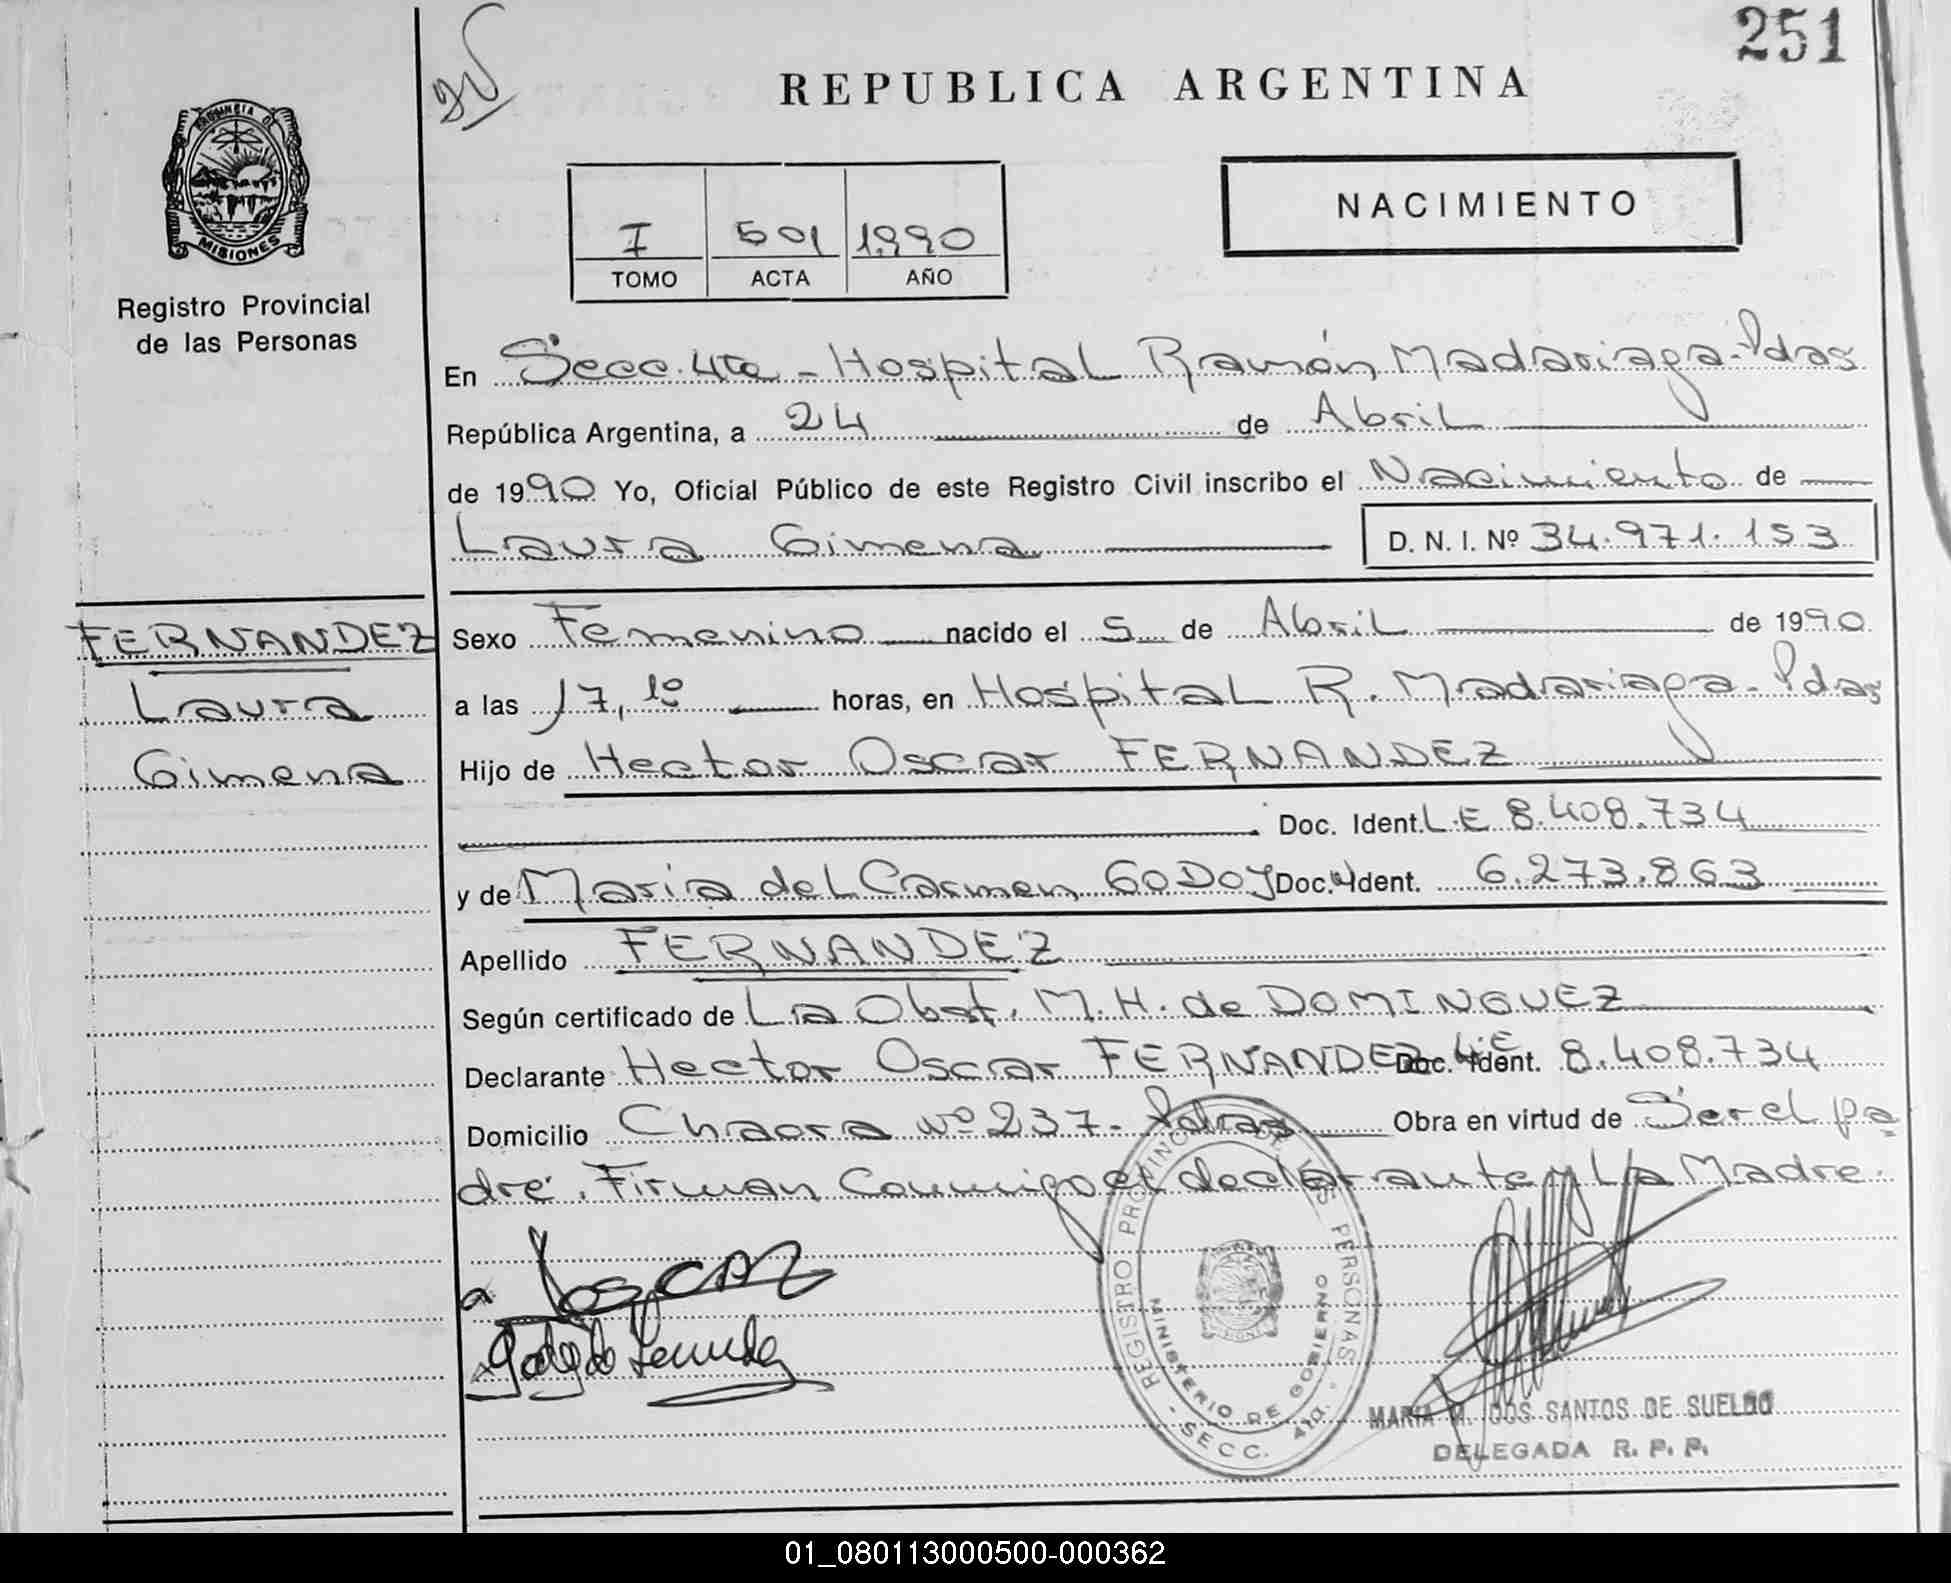 251
REPUBLICA ARGENTINA
PROVINCIA DE
MISIONES
Registro Provincial
de las Personas
NACIMIENTO
I 501 1990
TOMO ACTA AÑO
En Secc. 4ta - Hospital Ramón Madariaga - Pdas
República Argentina, a 24 de Abril
de 1990 Yo, Oficial Público de este Registro Civil inscribo el Nacimiento de
Laura Gimena D. N. I. Nº 34.971.153
FERNANDEZ
Laura
Gimena
Sexo Femenino nacido el 5 de Abril de 1990
a las 17,10 horas, en Hospital R. Madariaga - Pdas
Hijo de Hector Oscar FERNANDEZ
Doc. Ident. L.E 8.408.734
y de Maria del Carmen GODOY Doc. Ident. 6.273.863
Apellido FERNANDEZ
Según certificado de La Obst. M. H. de DOMINGUEZ
Declarante Hector Oscar FERNANDEZ Doc. Ident. LE 8.408.734
Domicilio Chacra Nº 237 - Pdas Obra en virtud de Ser el pa
dre. Firman Conmigo el declarante y La Madre.
REGISTRO PROVINCIAL DE LAS PERSONAS
MINISTERIO DE GOBIERNO
SECC. 4ta.
MARIA M. DOS SANTOS DE SUELDO
DELEGADA R. P. P.
01_080113000500-000362